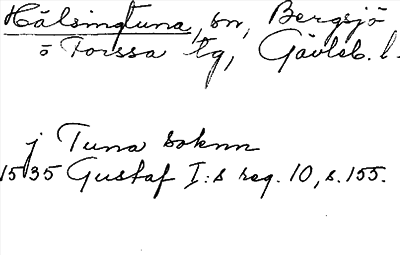 Hälsingtuna, sn, Bergsjö
o Forssa tg, Gävleb. l.
j Tuna soknn
1535 Gustaf I:s reg. 10, s. 155.